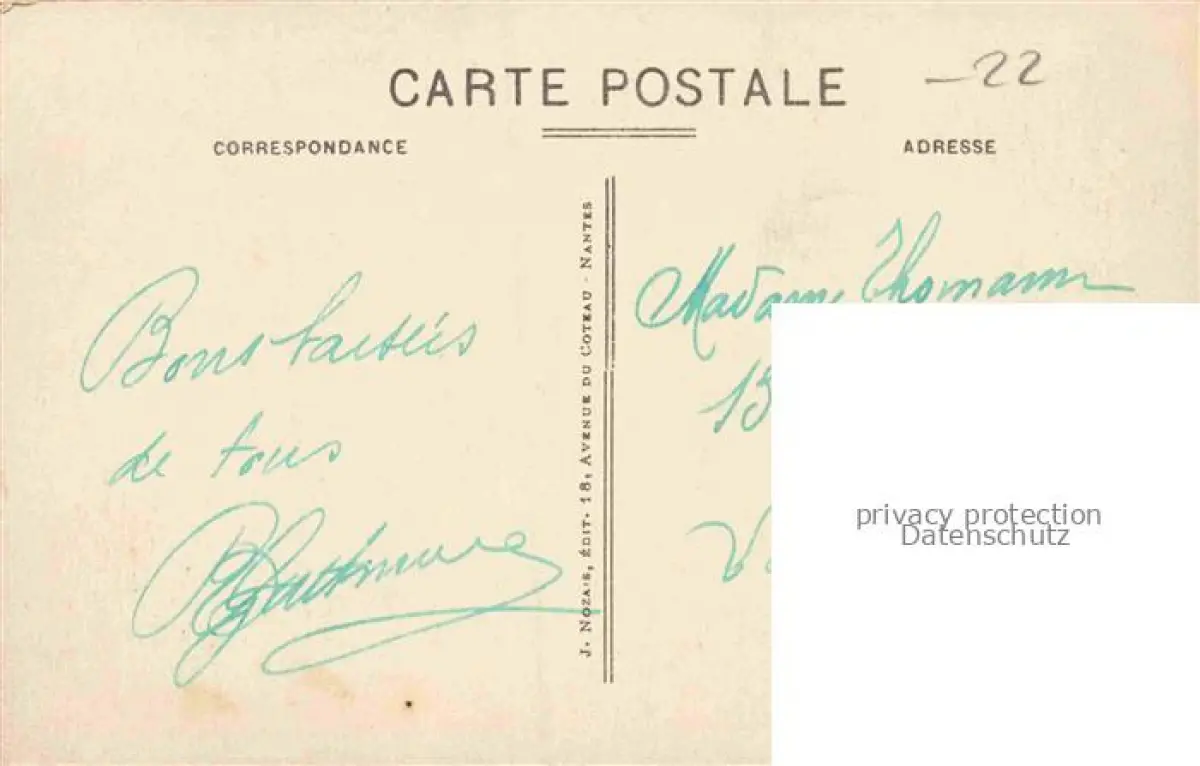 CARTE POSTALE
-22
CORRESPONDANCE
ADRESSE
Bons baisers
de tous
J. NOZAIS, ÉDIT. 18, AVENUE DU COTEAU - NANTES
Madame Thomann
13
V
privacy protection
Datenschutz